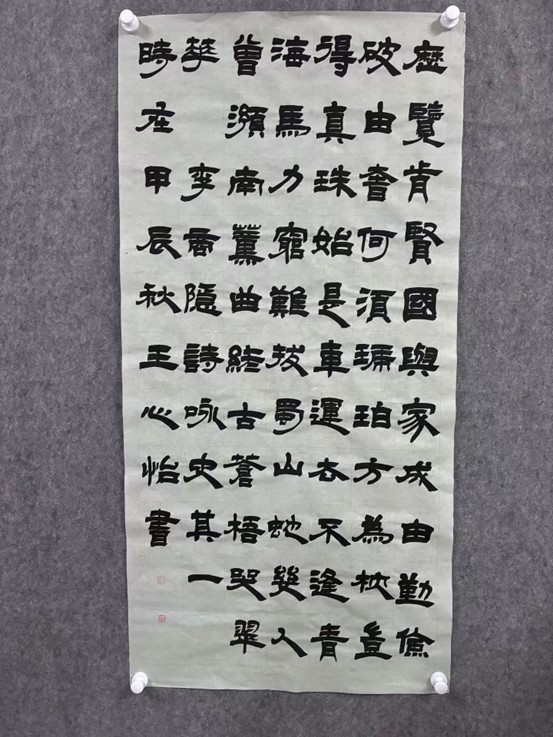 歷覽前賢國與家成由勤儉
破由奢何須琥珀方為枕豈
得真珠始是車運去不逢青
海馬力窮難拔蜀山蛇幾人
曾瀕南薰曲終古蒼梧哭翠
華 李商隱詩咏史其一
時在甲辰秋王心怡書